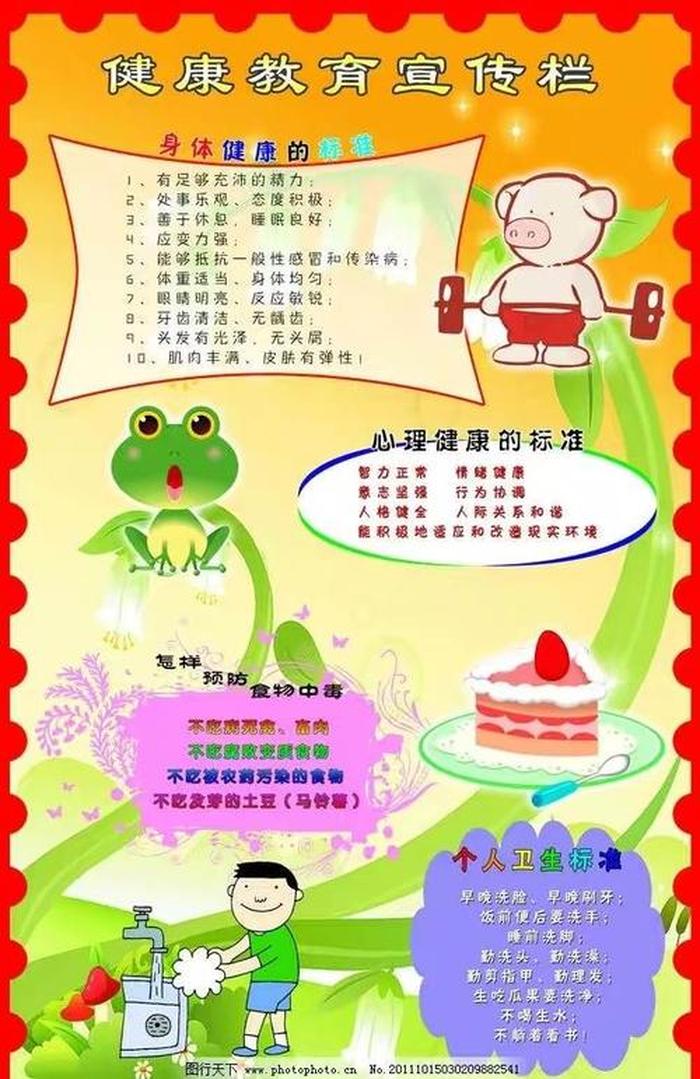 健康教育宣传栏
身体健康的标准
1、有足够充沛的精力；
2、处事乐观、态度积极；
3、善于休息，睡眠良好；
4、应变力强；
5、能够抵抗一般性感冒和传染病；
6、体重适当、身体均匀；
7、眼睛明亮、反应敏锐；
8、牙齿清洁、无龋齿；
9、头发有光泽，无头屑；
10、肌肉丰满、皮肤有弹性！
心理健康的标准
智力正常 情绪健康
意志坚强 行为协调
人格健全 人际关系和谐
能积极地适应和改造现实环境
怎样
预防
食物中毒
不吃病死禽、畜肉
不吃腐败变质食物
不吃被农药污染的食物
不吃发芽的土豆（马铃薯）
个人卫生标准
早晚洗脸、早晚刷牙；
饭前便后要洗手；
睡前洗脚；
勤洗头、勤洗澡；
勤剪指甲、勤理发；
生吃瓜果要洗净；
不喝生水；
不躺着看书！
图行天下 www.photophoto.cn No.20111015030209882541